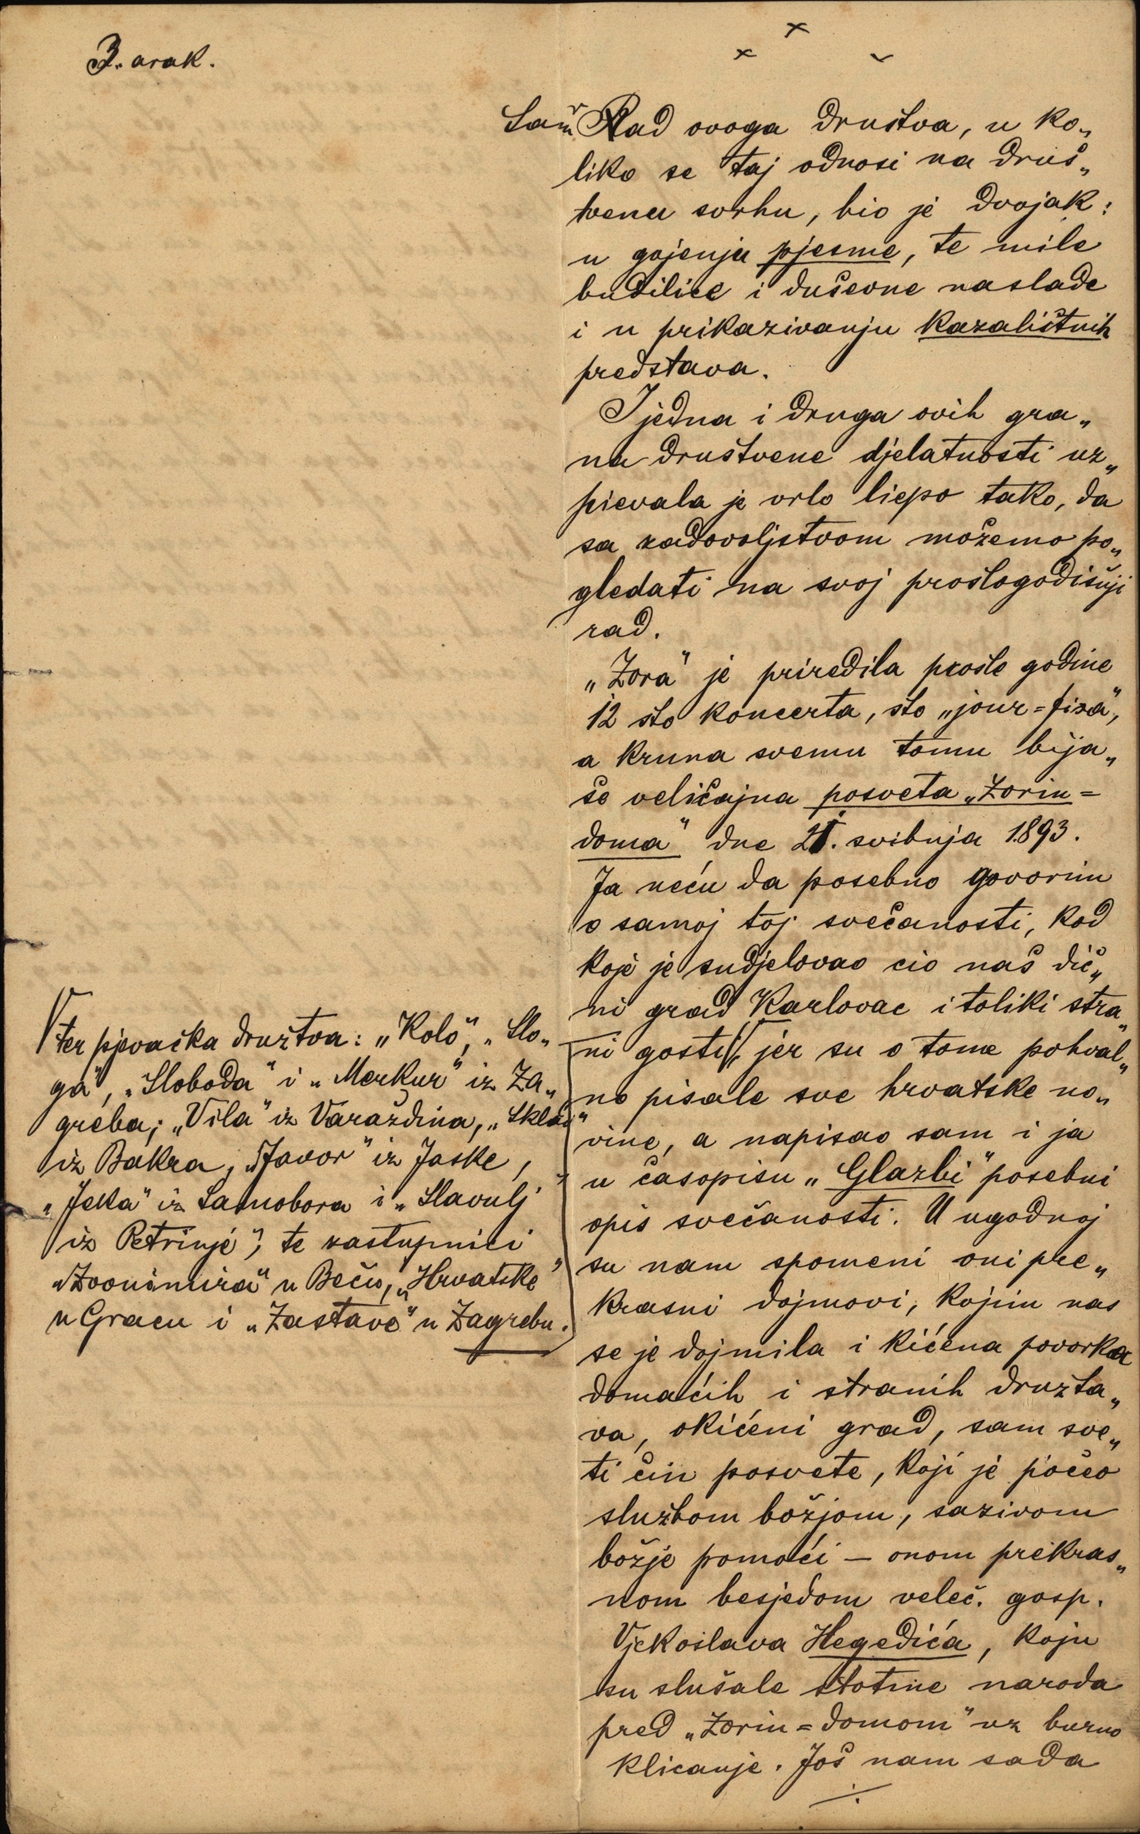 3. arak.
Sam Rad ovoga društva, u ko„
liko se taj odnosi na druš„
tvenu svrhu, bio je dvojak:
u gojenju pjesme, te mile
budilice i duševne naslade
i u prikazivanju kazalištnih
predstava.
I jedna i druga ovih gra„
na društvene djelatnosti uz„
pievala je vrlo liepo tako, da
sa zadovoljstvom možemo po„
gledati na svoj prošlogodišnji
rad.
„Zora“ je priredila prošle godine
12 što koncerta, što „jour=fixa“,
a kruna svemu tomu bija„
še veličajna posveta „Zorin=
doma“ dne 21. svibnja 1893.
Ja neću da posebno govorim
o samoj toj svečanosti, kod
koje je sudjelovao cio naš dič„
ni grad Karlovac i toliki stra„
ni gosti, jer su o tome pohval„
no pisale sve hrvatske no„
vine, a napisao sam i ja
u časopisu „Glazbi“ posebni
opis svečanosti. U ugodnoj
su nam spomeni oni pre„
krasni dojmovi, kojim nas
se je dojmila i kićena povorka
domaćih i stranih družta„
va, okićeni grad, sam sve„
ti čin posvete, koji je počeo
službom božjom, sazivom
božje pomoći – onom prekras„
nom besjedom veleč. gosp.
Vjekoslava Hegedića, koju
su slušale stotine naroda
pred „Zorin=domom“ uz burno
klicanje. Još nam sada
./.
ter pjevačka družtva: „Kolo“, „Slo„
ga“, „Sloboda“ i „Merkur“ iz Za„
greba; „Vila“ iz Varaždina, „Sklad“
iz Bakra, „Javor“ iz Jaske,
„Jeka“ iz Samobora i „Slavulj“
iz Petrinje“, te zastupnici
„Zvonimira“ u Beču, „Hrvatske“
u Gracu i „Zastave“ u Zagrebu.